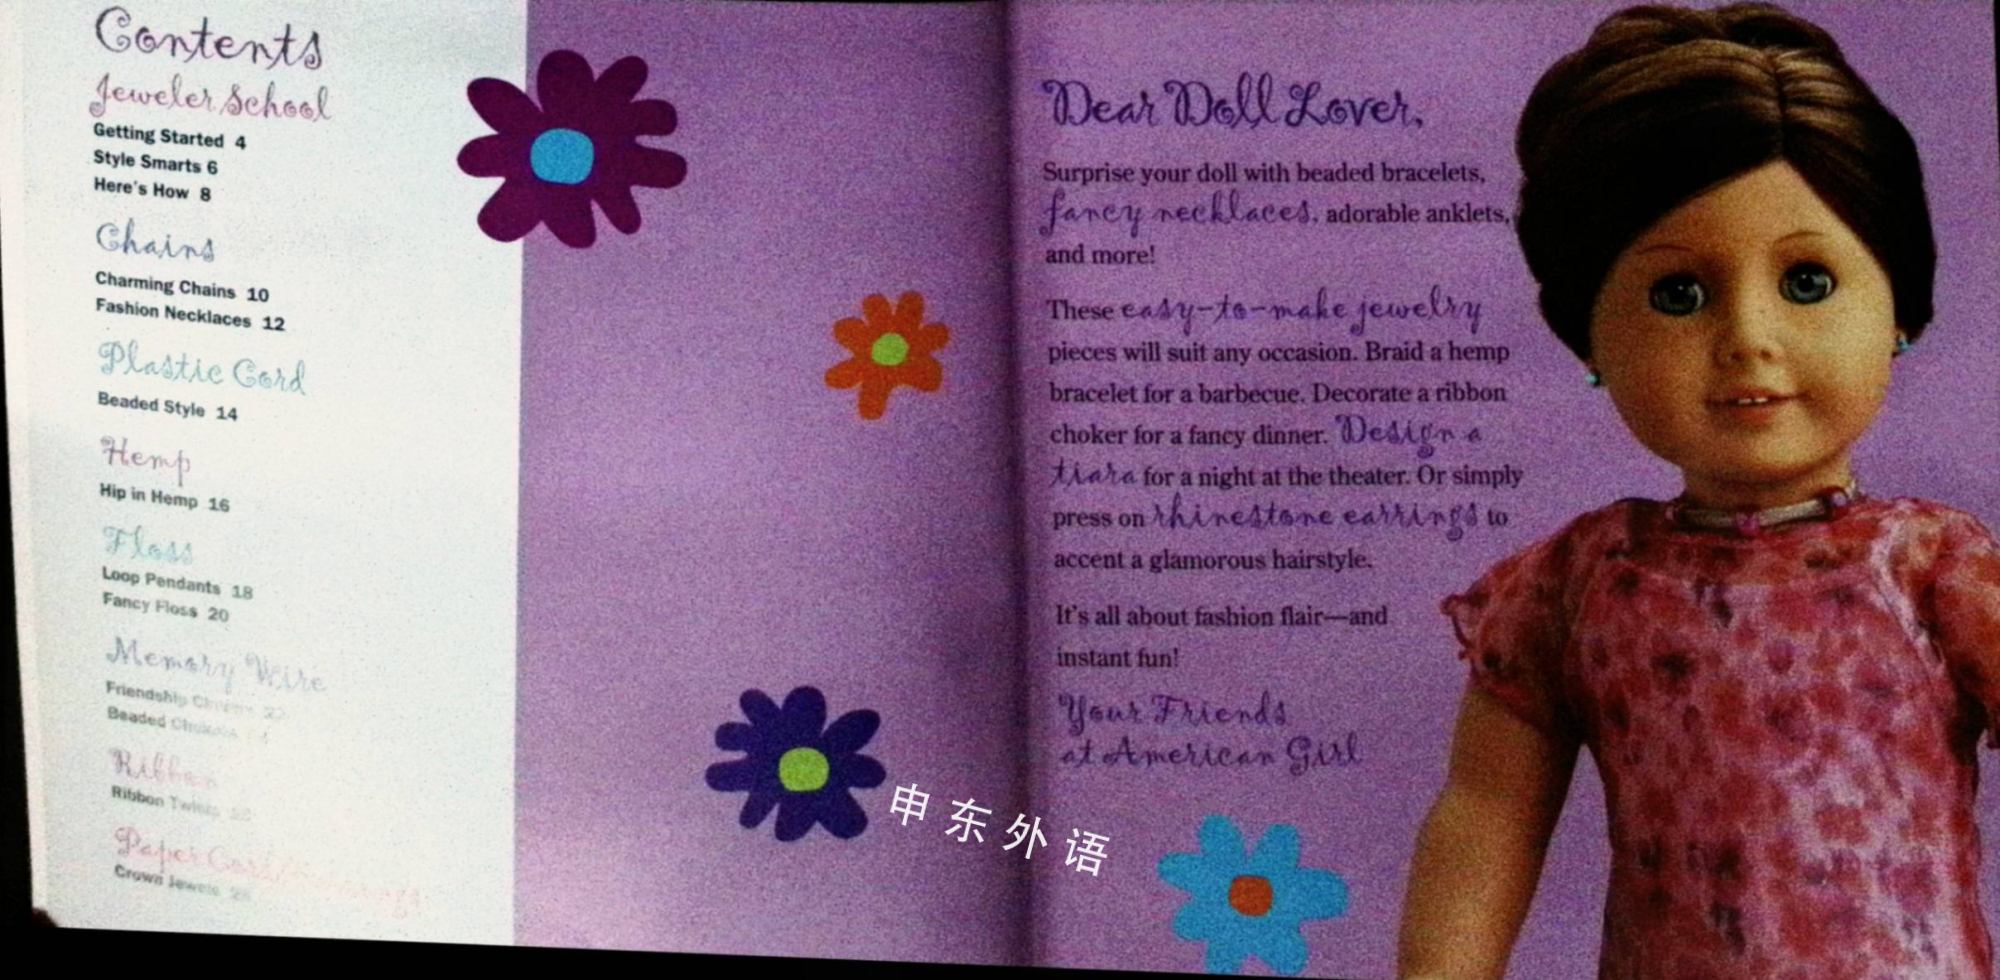 Contents
Jeweler School
Getting Started 4
Style Smarts 6
Here's How 8
Chains
Charming Chains 10
Fashion Necklaces 12
Plastic Cord
Beaded Style 14
Hemp
Hip in Hemp 16
Floss
Loop Pendants 18
Fancy Floss 20
Memory Wire
Friendship 22
Beaded
Ribbon
Ribbon Twists
Paper
Crown Jewels
Dear Doll Lover,
Surprise your doll with beaded bracelets,
fancy necklaces, adorable anklets,
and more!
These easy-to-make jewelry
pieces will suit any occasion. Braid a hemp
bracelet for a barbecue. Decorate a ribbon
choker for a fancy dinner. Design a
tiara for a night at the theater. Or simply
press on rhinestone earrings to
accent a glamorous hairstyle.
It's all about fashion flair—and
instant fun!
Your Friends
at American Girl
申东外语